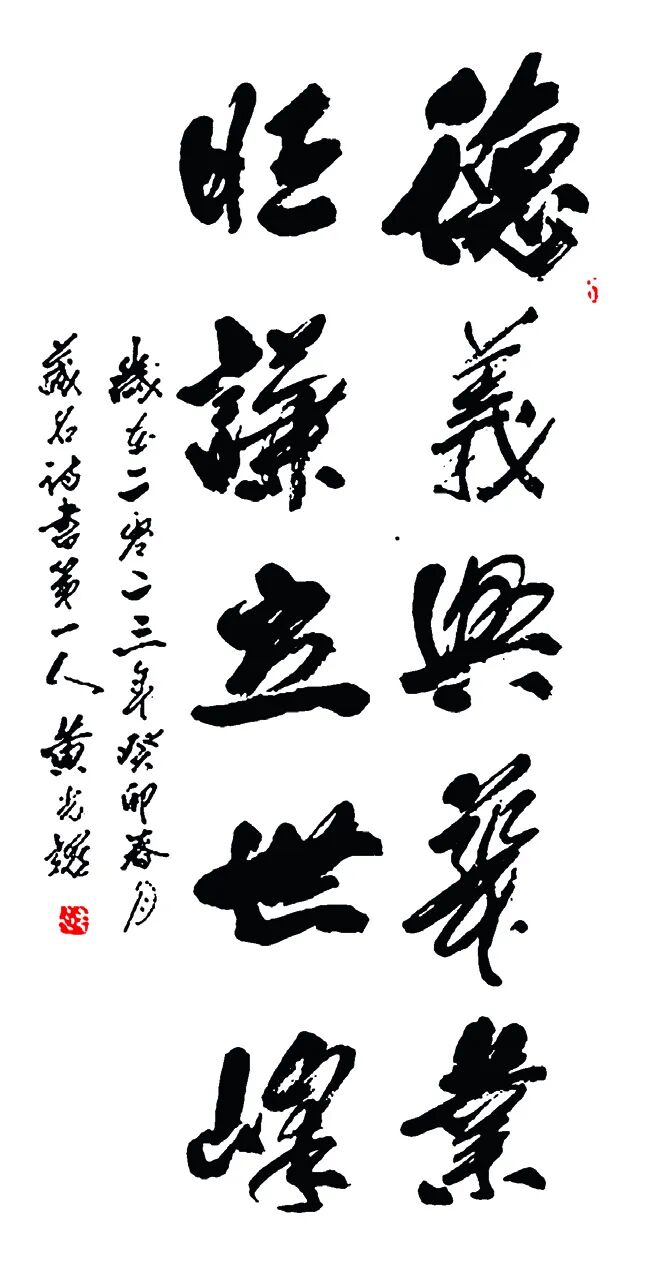 德義興業
旺謙立世峰
歲在二零二三年癸卯春月
藏名詩書第一人黄光